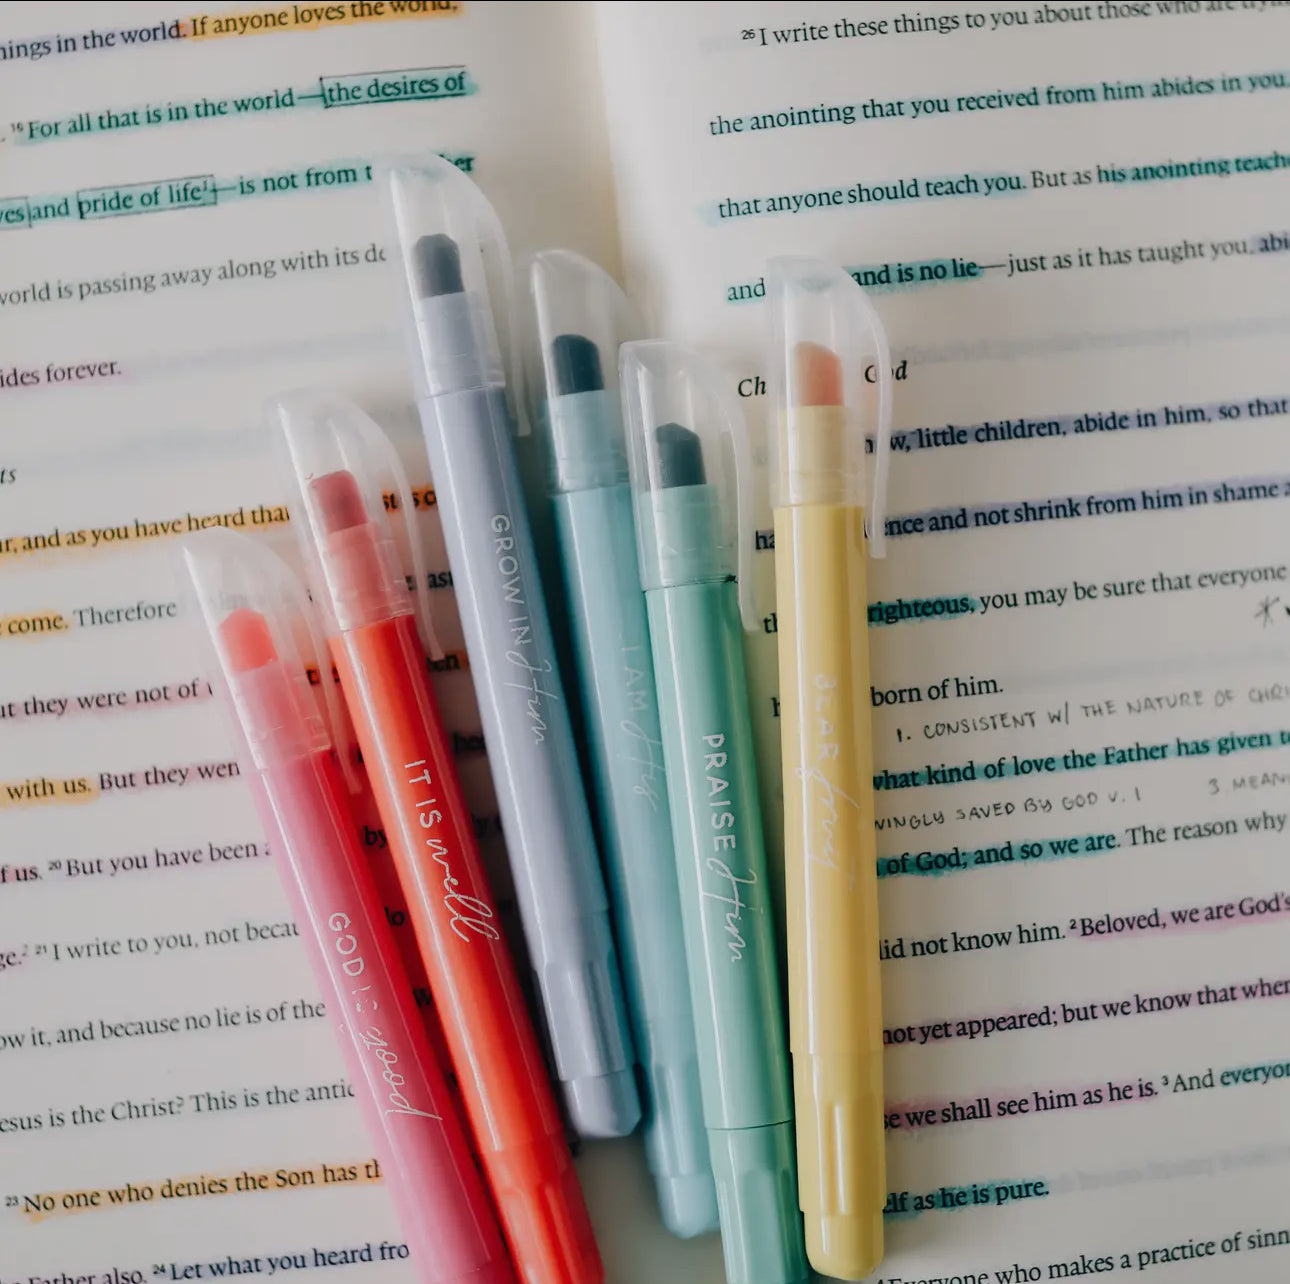 things in the world. If anyone loves the world,
16 For all that is in the world—the desires of
and pride of life1—is not from
world is passing away along with its
forever.
and as you have heard
come. Therefore
they were not of
with us. But they
of us. 20 But you have been
2 21 I write to you, not
it, and because no lie is of the
is the Christ? This is the
23 No one who denies the Son has
Father also. 24 Let what you heard
26 I write these things to you about those who are
the anointing that you received from him abides in you.
that anyone should teach you. But as his anointing
and and is no lie—just as it has taught you,
little children, abide in him, so that
and not shrink from him in shame
righteous, you may be sure that everyone
born of him.
1. CONSISTENT W/ THE NATURE OF
what kind of love the Father has given
SAVED BY GOD V. 1 3.
of God; and so we are. The reason why
did not know him. 2 Beloved, we are God's
not yet appeared; but we know that
we shall see him as he is. 3 And
as he is pure.
who makes a practice of
GOD IS good
IT IS well
GROW IN Him
I AM His
PRAISE Him
BEAR fruit